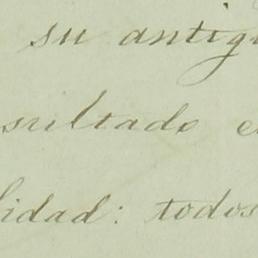 su antig
sultado e
lidad: todos